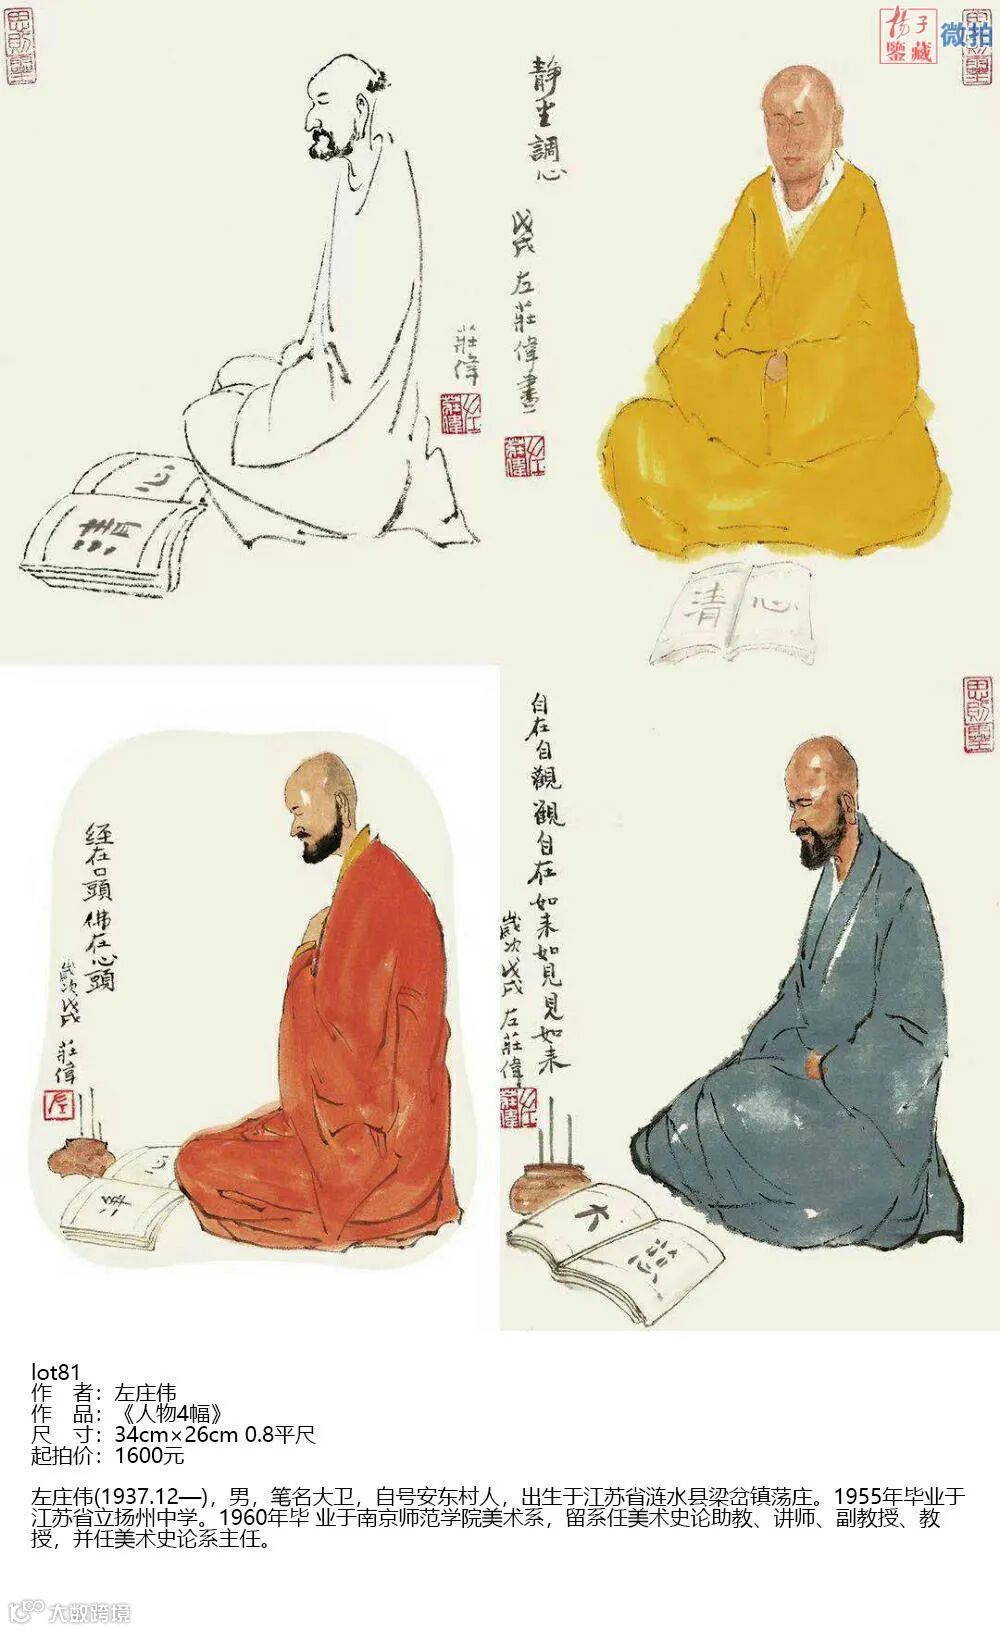 思則靈
莊偉
左
莊偉
心
揚子
鑒藏
微拍
靜坐調心
戊戌 左莊偉畫
左
莊偉
清心
經在口頭 佛在心頭
歲次戊戌 莊偉
左
心
思則靈
自在自觀觀自在如來如見見如來
歲次戊戌 左莊偉
左
莊偉
大悲
lot81
作 者：左庄伟
作 品：《人物4幅》
尺 寸：34cm×26cm 0.8平尺
起拍价：1600元
左庄伟(1937.12—)，男，笔名大卫，自号安东村人，出生于江苏省涟水县梁岔镇荡庄。1955年毕业于
江苏省立扬州中学。1960年毕 业于南京师范学院美术系，留系任美术史论助教、讲师、副教授、教
授，并任美术史论系主任。
大数跨境